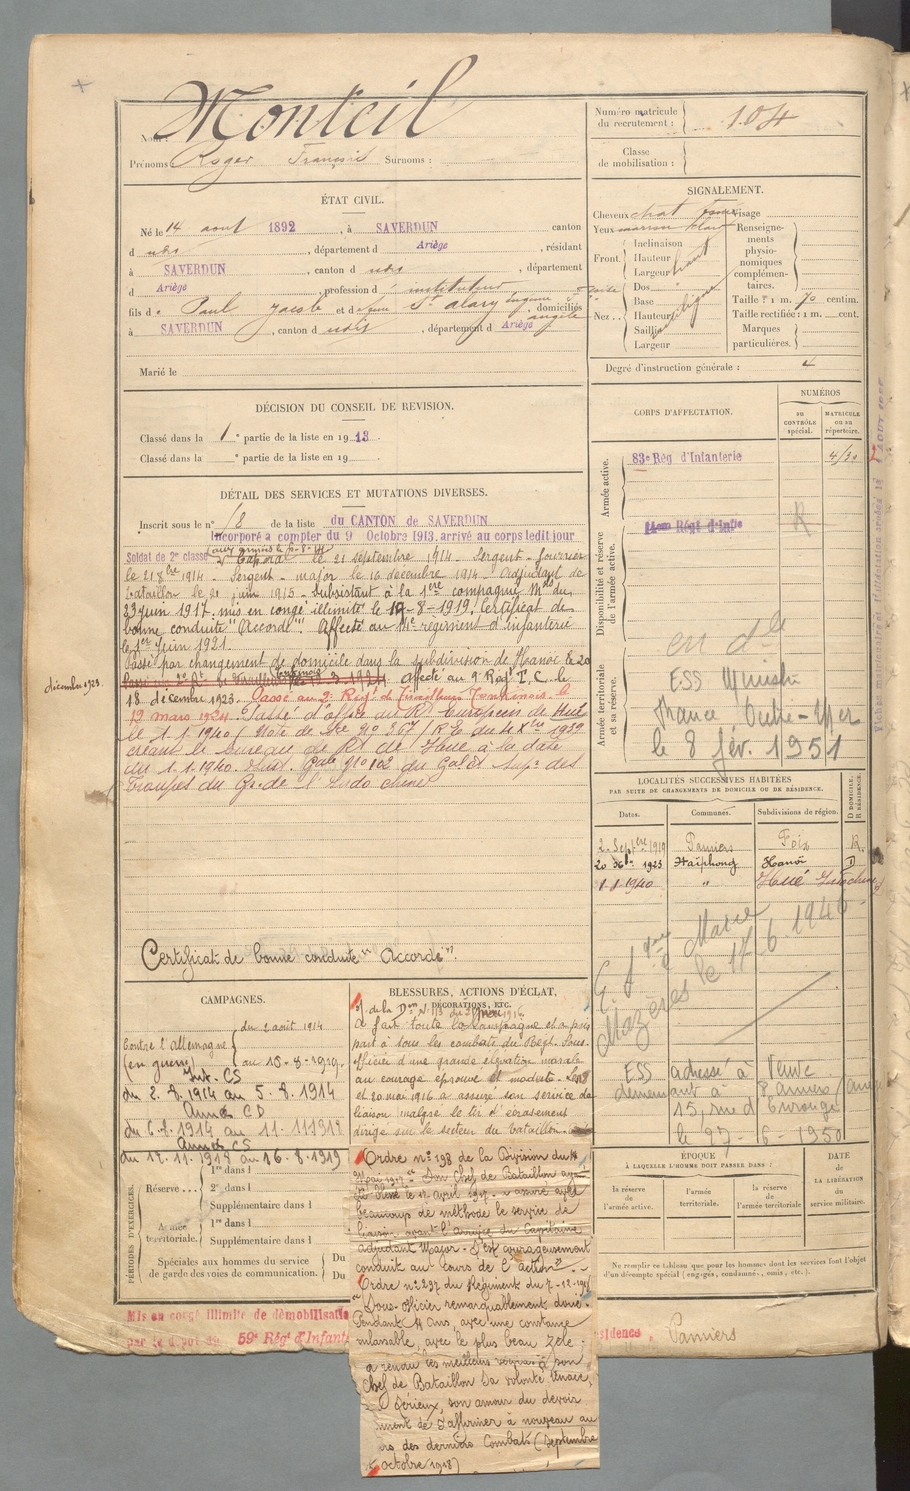 Nom : Monteil
Prénoms : Roger François Surnoms :
Numéro matricule du recrutement : 104
Classe de mobilisation :
ÉTAT CIVIL.
Né le 14 aout 1892, à SAVERDUN canton
d udis, département d Ariège, résidant
à SAVERDUN, canton d udis, département
d Ariège, profession d instituteur
fils de Paul Jacob et de St alary eugénie, domiciliés
à SAVERDUN, canton d udis, département d Ariège
Marié le
SIGNALEMENT.
Cheveux chat Visage
Yeux marron clair
Front. Inclinaison
Hauteur
Largeur haut
Nez. Dos
Base
Hauteur
Saillie
Largeur
Renseignements physionomiques complémentaires.
Taille : 1 m. 70 centim.
Taille rectifiée : 1 m. cent.
Marques particulières.
Degré d'instruction générale : 4
DÉCISION DU CONSEIL DE REVISION.
Classé dans la 1e partie de la liste en 1913.
Classé dans la e partie de la liste en 19
DÉTAIL DES SERVICES ET MUTATIONS DIVERSES.
Inscrit sous le n° 18 de la liste du CANTON de SAVERDUN
Incorporé a compter du 9 Octobre 1913, arrivé au corps ledit jour
Soldat de 2e classe
Caporal le 21 septembre 1914 - Sergent fourrier
le 21 8bre 1914 - Sergent-major le 16 décembre 1914 - Adjudant de
bataillon le 21 juin 1915 - Subsistant à la 1ère compagnie Mon du
23 juin 1917. mis en congé illimité le 19-8-1919. Certificat de
bonne conduite "Accordé". Affecté au régiment d'infanterie
le 1er Juin 1921.
Passé par changement de domicile dans la subdivision de Hanoï le 20
décembre 1923.
affecté au 9e Régt I. C. le
18 décembre 1923. Passé au 2e Régt de Tirailleurs Tonkinois le
19 mars 1924. Passé d'office au Rt Européen de Hué
le 1.1.1940 / Note de Sce No 367 / R du 4 Xbre 1939
créant le bureau de Rt de Hué à la date
du 1.1.1940. Inst. Gale No 102 du Gal Ct Supr des
Troupes du Gr. de l'Indo chine
Certificat de bonne conduite "Accordé".
CORPS D'AFFECTATION.
NUMÉROS
AU CONTRÔLE spécial.
MATRICULE OU AU répertoire.
Armée active.
83e Rég d'Infanterie
Disponibilité et réserve de l'armée active.
Régt d'Infie
R
Armée territoriale et sa réserve.
ESS Minist
France Outre-Mer
le 8 fév. 1951
LOCALITÉS SUCCESSIVES HABITÉES
PAR SUITE DE CHANGEMENTS DE DOMICILE OU DE RÉSIDENCE.
Dates. Communes. Subdivisions de région. D DOMICILE. R RÉSIDENCE.
2 Septre 1919 Pamiers Foix R.
20 Xbre 1923 Haïphong Hanoï D
1-1-1940 " Hué Indochine
Mazères le 17.6.1946
ESS adressé à Veuve
demeurant à Pamiers
15, rue d
le 27-6-1950
CAMPAGNES.
Contre l'allemagne du 2 août 1914
(en guerre) au 18-8-1919.
Int. CS
du 2.8.1914 au 5.8.1914
Armée CD
du 6.8.1914 au 11.11.1918
Armée CS
du 12.11.1918 au 16.8.1919
BLESSURES, ACTIONS D'ÉCLAT,
DÉCORATIONS, ETC.
A fait toute la campagne et a pris
part à tous les combats du Régt. Sous-
officier d'une grande élévation morale
au courage éprouvé et modeste.
et 20 mai 1916 a assuré son service de
liaison malgré le tir d'écrasement
dirigé sur le secteur du bataillon.
Ordre no 198 de la Division du 4
Mai 1917. " Son Chef de Bataillon ayant
été blessé le 17 avril 1917 - a assuré avec
beaucoup de méthode le service de
liaison avant l'arrivée du Capitaine
adjudant Major. S'est courageusement
conduit au cours de l'action".
Ordre no 297 du Régiment du 7-12-1918
" Sous-officier remarquablement doué.
Pendant 4 ans, avec une constance
inlassable, avec le plus beau zèle,
a rendu les meilleurs services à son
Chef de Bataillon. Sa volonté tenace,
sérieux, son amour du devoir
s'affirmer à nouveau au
des derniers Combats (Septembre
octobre 1918)
PÉRIODES D'EXERCICES.
Réserve... 1re dans l
2e dans l
Supplémentaire dans l
Armée territoriale. 1re dans l
Supplémentaire dans l
Spéciales aux hommes du service de garde des voies de communication. Du
Du
ÉPOQUE
À LAQUELLE L'HOMME DOIT PASSER DANS :
la réserve de l'armée active.
l'armée territoriale.
la réserve de l'armée territoriale
DATE DE LA LIBÉRATION du service militaire.
Ne remplir ce tableau que pour les hommes dont les services font l'objet d'un décompte spécial (engagés, condamnés, omis, etc.).
Mis en congé illimité de démobilisation
par le dépôt du 59e Régt d'Infant
Pamiers